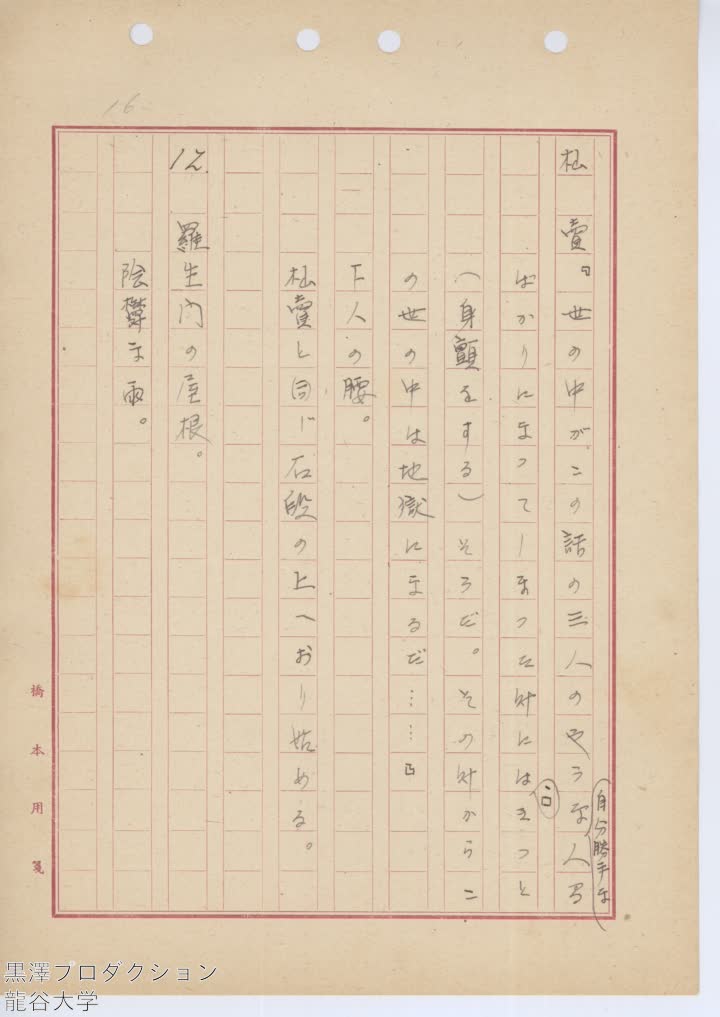 16
杣賣『世の中がこの話の三人のやうな自分勝手な人間
ばかりになつてしまつた時にはきつと
(身顫をする)そうだ。その時からこ
の世の中は地獄になるだ……』
下人の腰。
杣賣と同じ石段の上へおり始める。
12. 羅生門の屋根。
陰欝な雨。
橋本用箋
黒澤プロダクション
龍谷大学